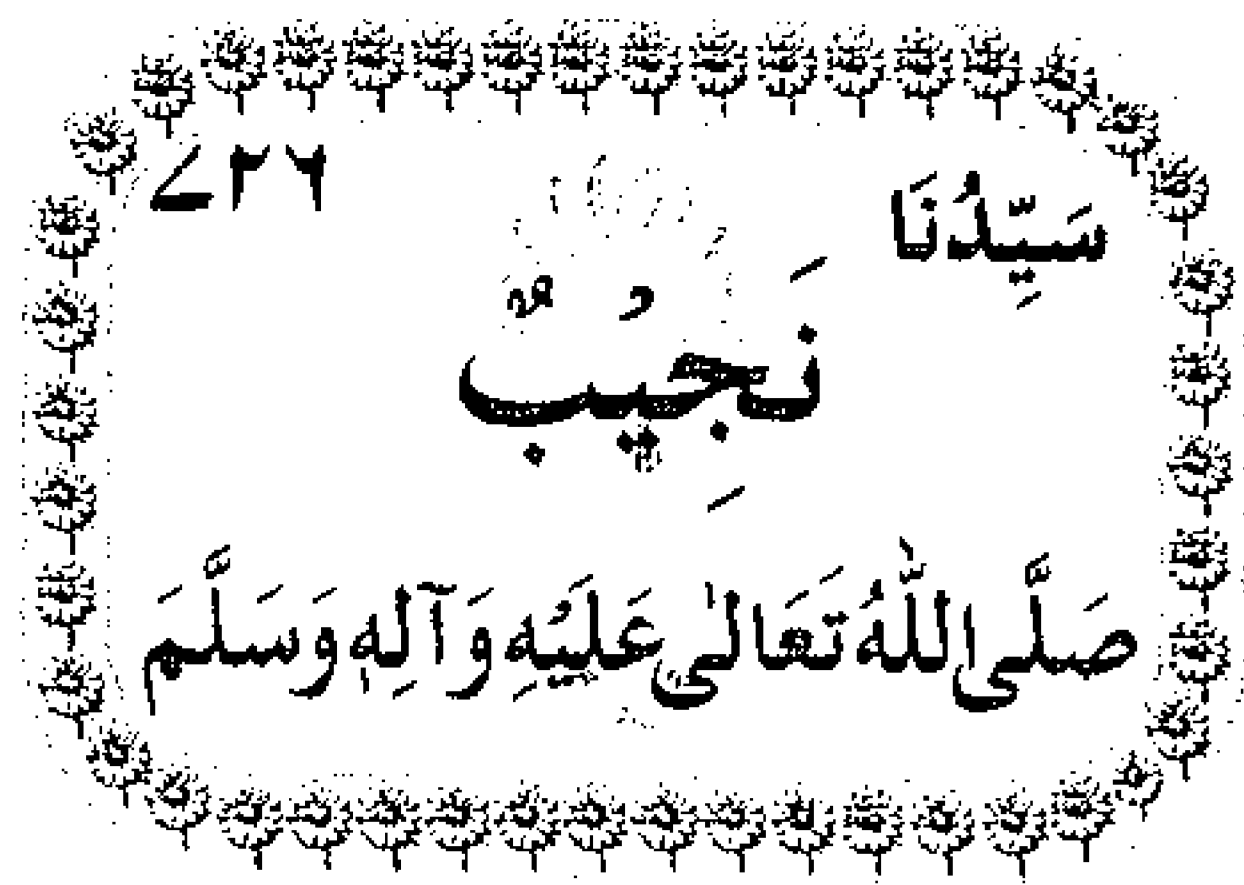 سَيِّدُنَا ۷۲۶
نَجِيْبٌ
صَلَّى اللّٰهُ تَعَالٰى عَلَيْهِ وَآلِهٖ وَسَلَّمَ